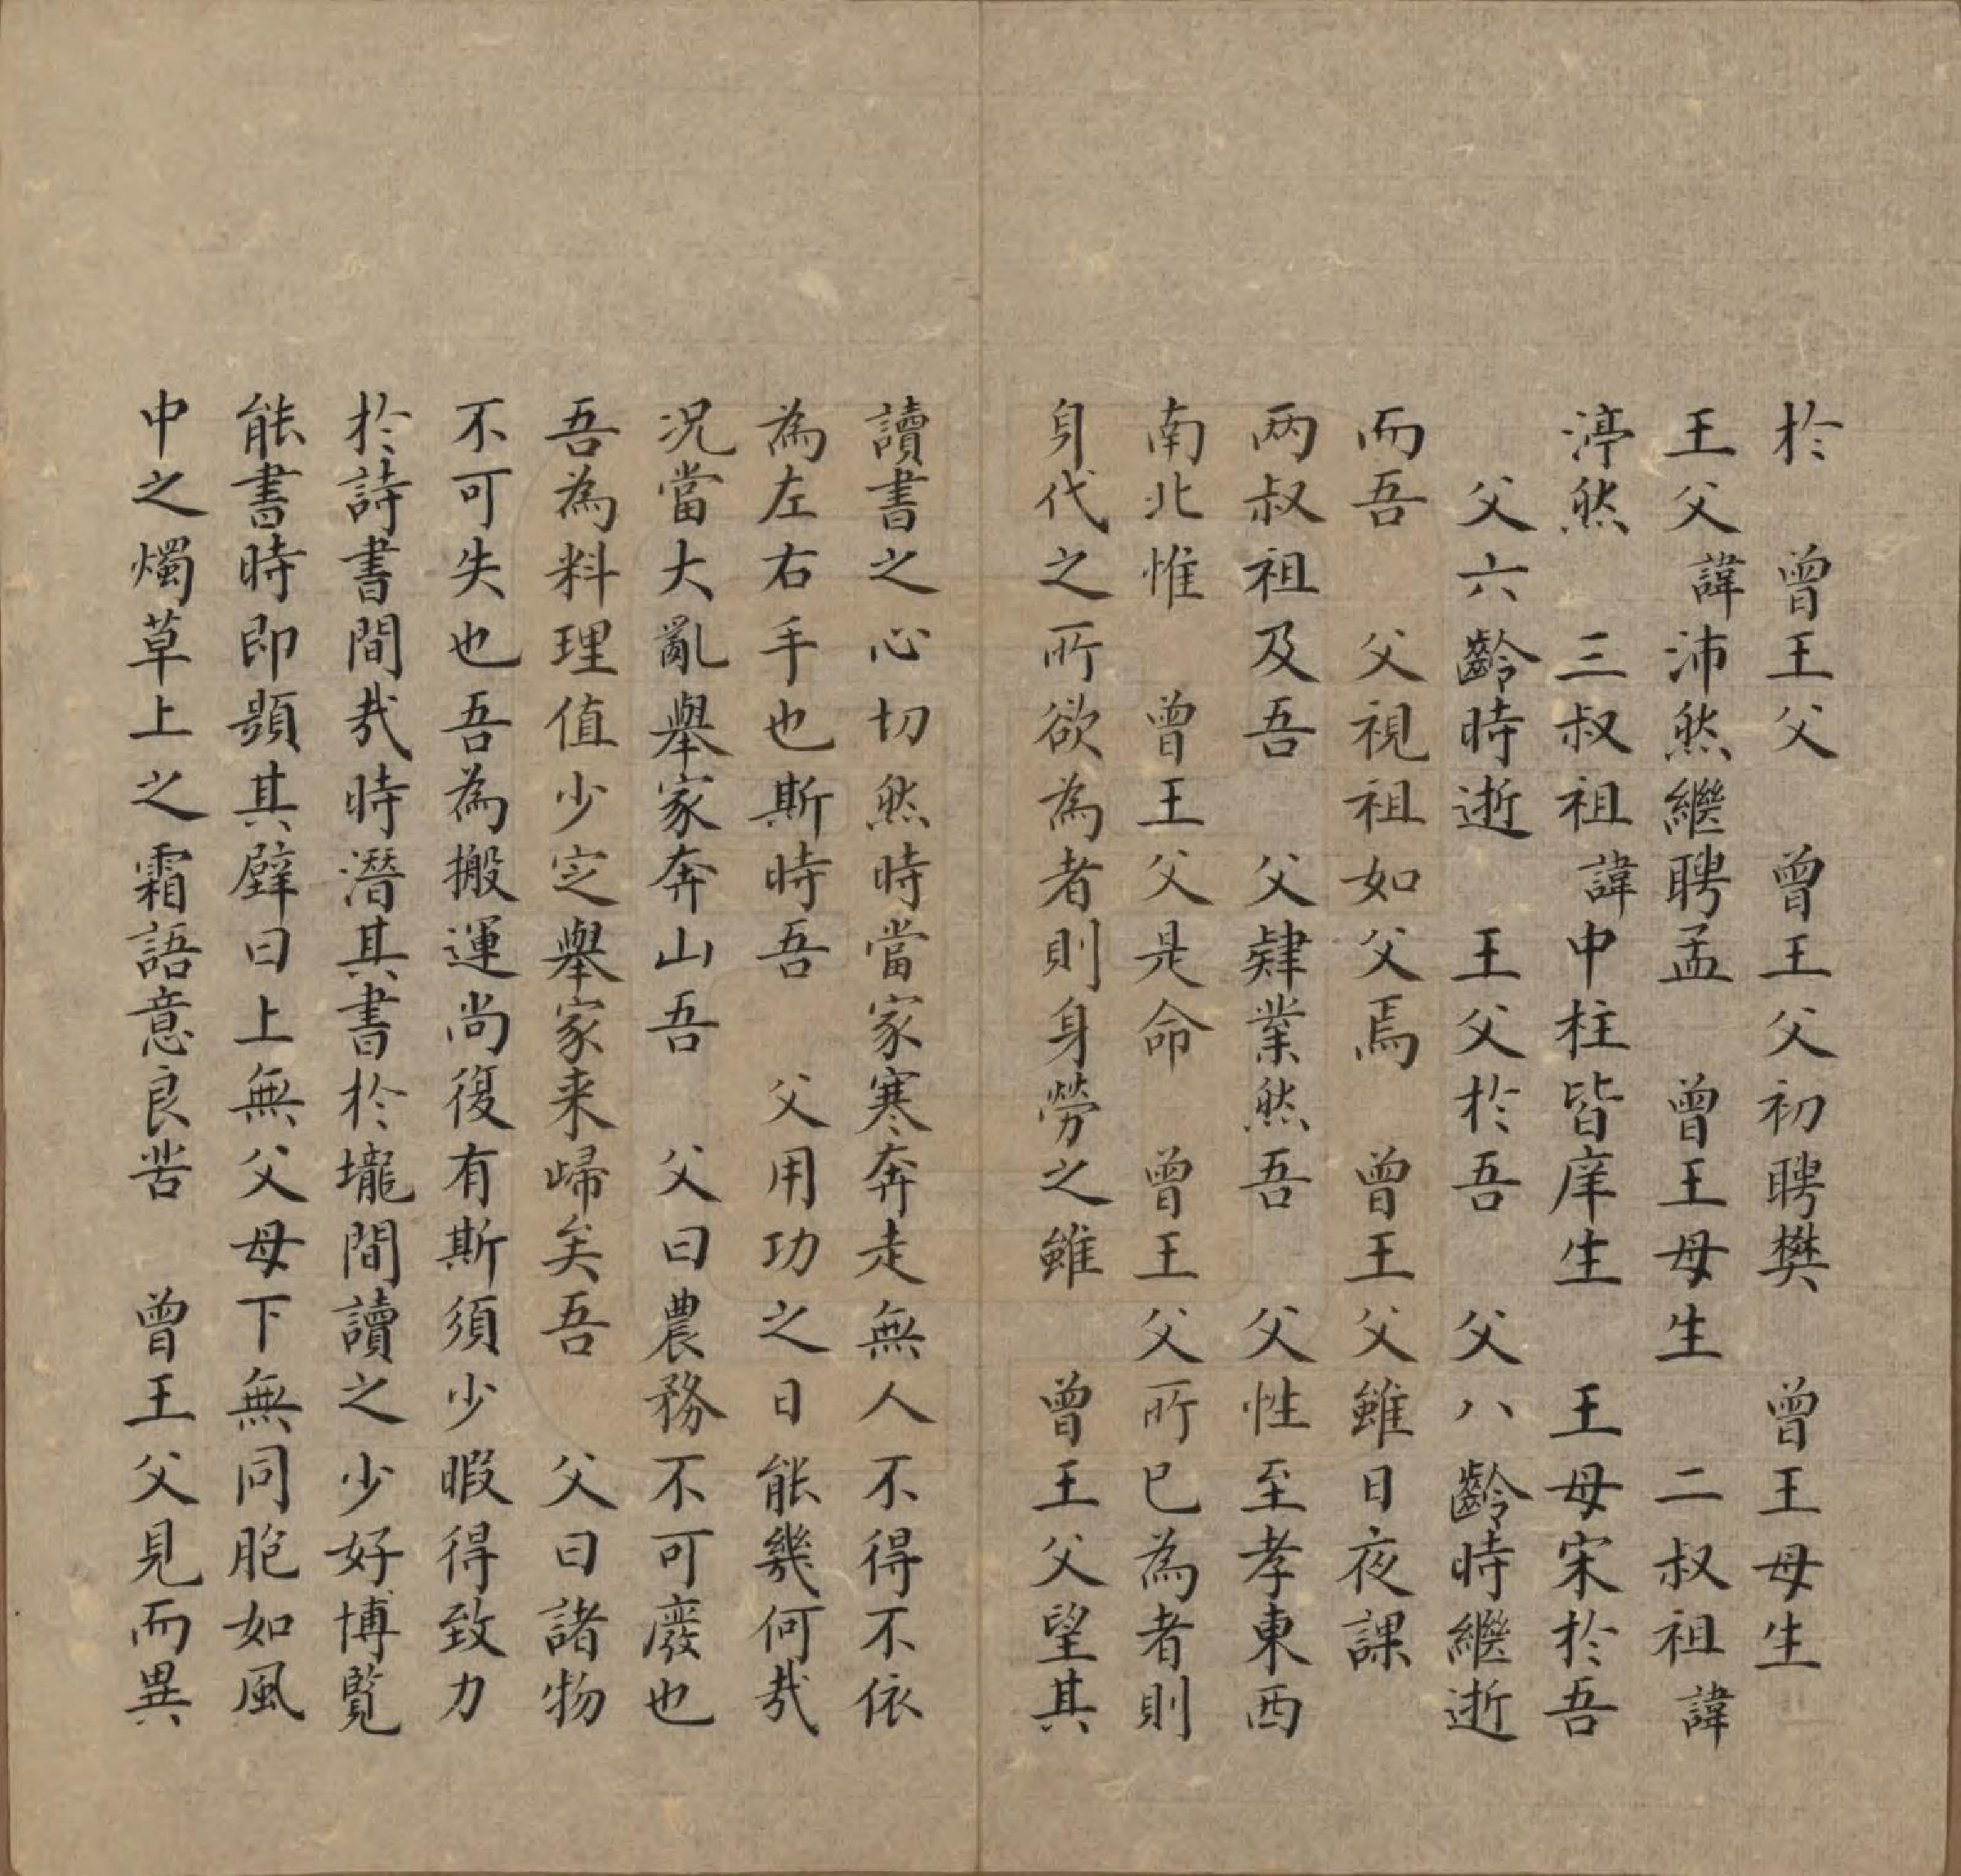 於　曾王父　曾王父初聘樊　曾王母生
王父諱沛然繼聘孟　曾王母生　二叔祖諱
渟然　三叔祖諱中柱皆庠生　王母宋於吾
父六齡時逝　王父於吾　父八齡時繼逝
而吾　父視祖如父焉　曾王父雖日夜課
两叔祖及吾　父肄業然吾　父性至孝東西
南北惟　曾王父是命　曾王父所已為者則
身代之所欲為者則身勞之雖　曾王父望其
讀書之心切然時當家寒奔走無人不得不依
為左右手也斯時吾　父用功之日能幾何哉
况當大亂舉家奔山吾　父曰農務不可廢也
吾為料理值少定舉家来歸矣吾　父曰諸物
不可失也吾為搬運尚復有斯須少暇得致力
於詩書間哉時潛其書於壠間讀之少好博覧
能書時即顯其壁曰上無父母下無同胞如風
中之燭草上之霜語意良苦　曾王父見而異